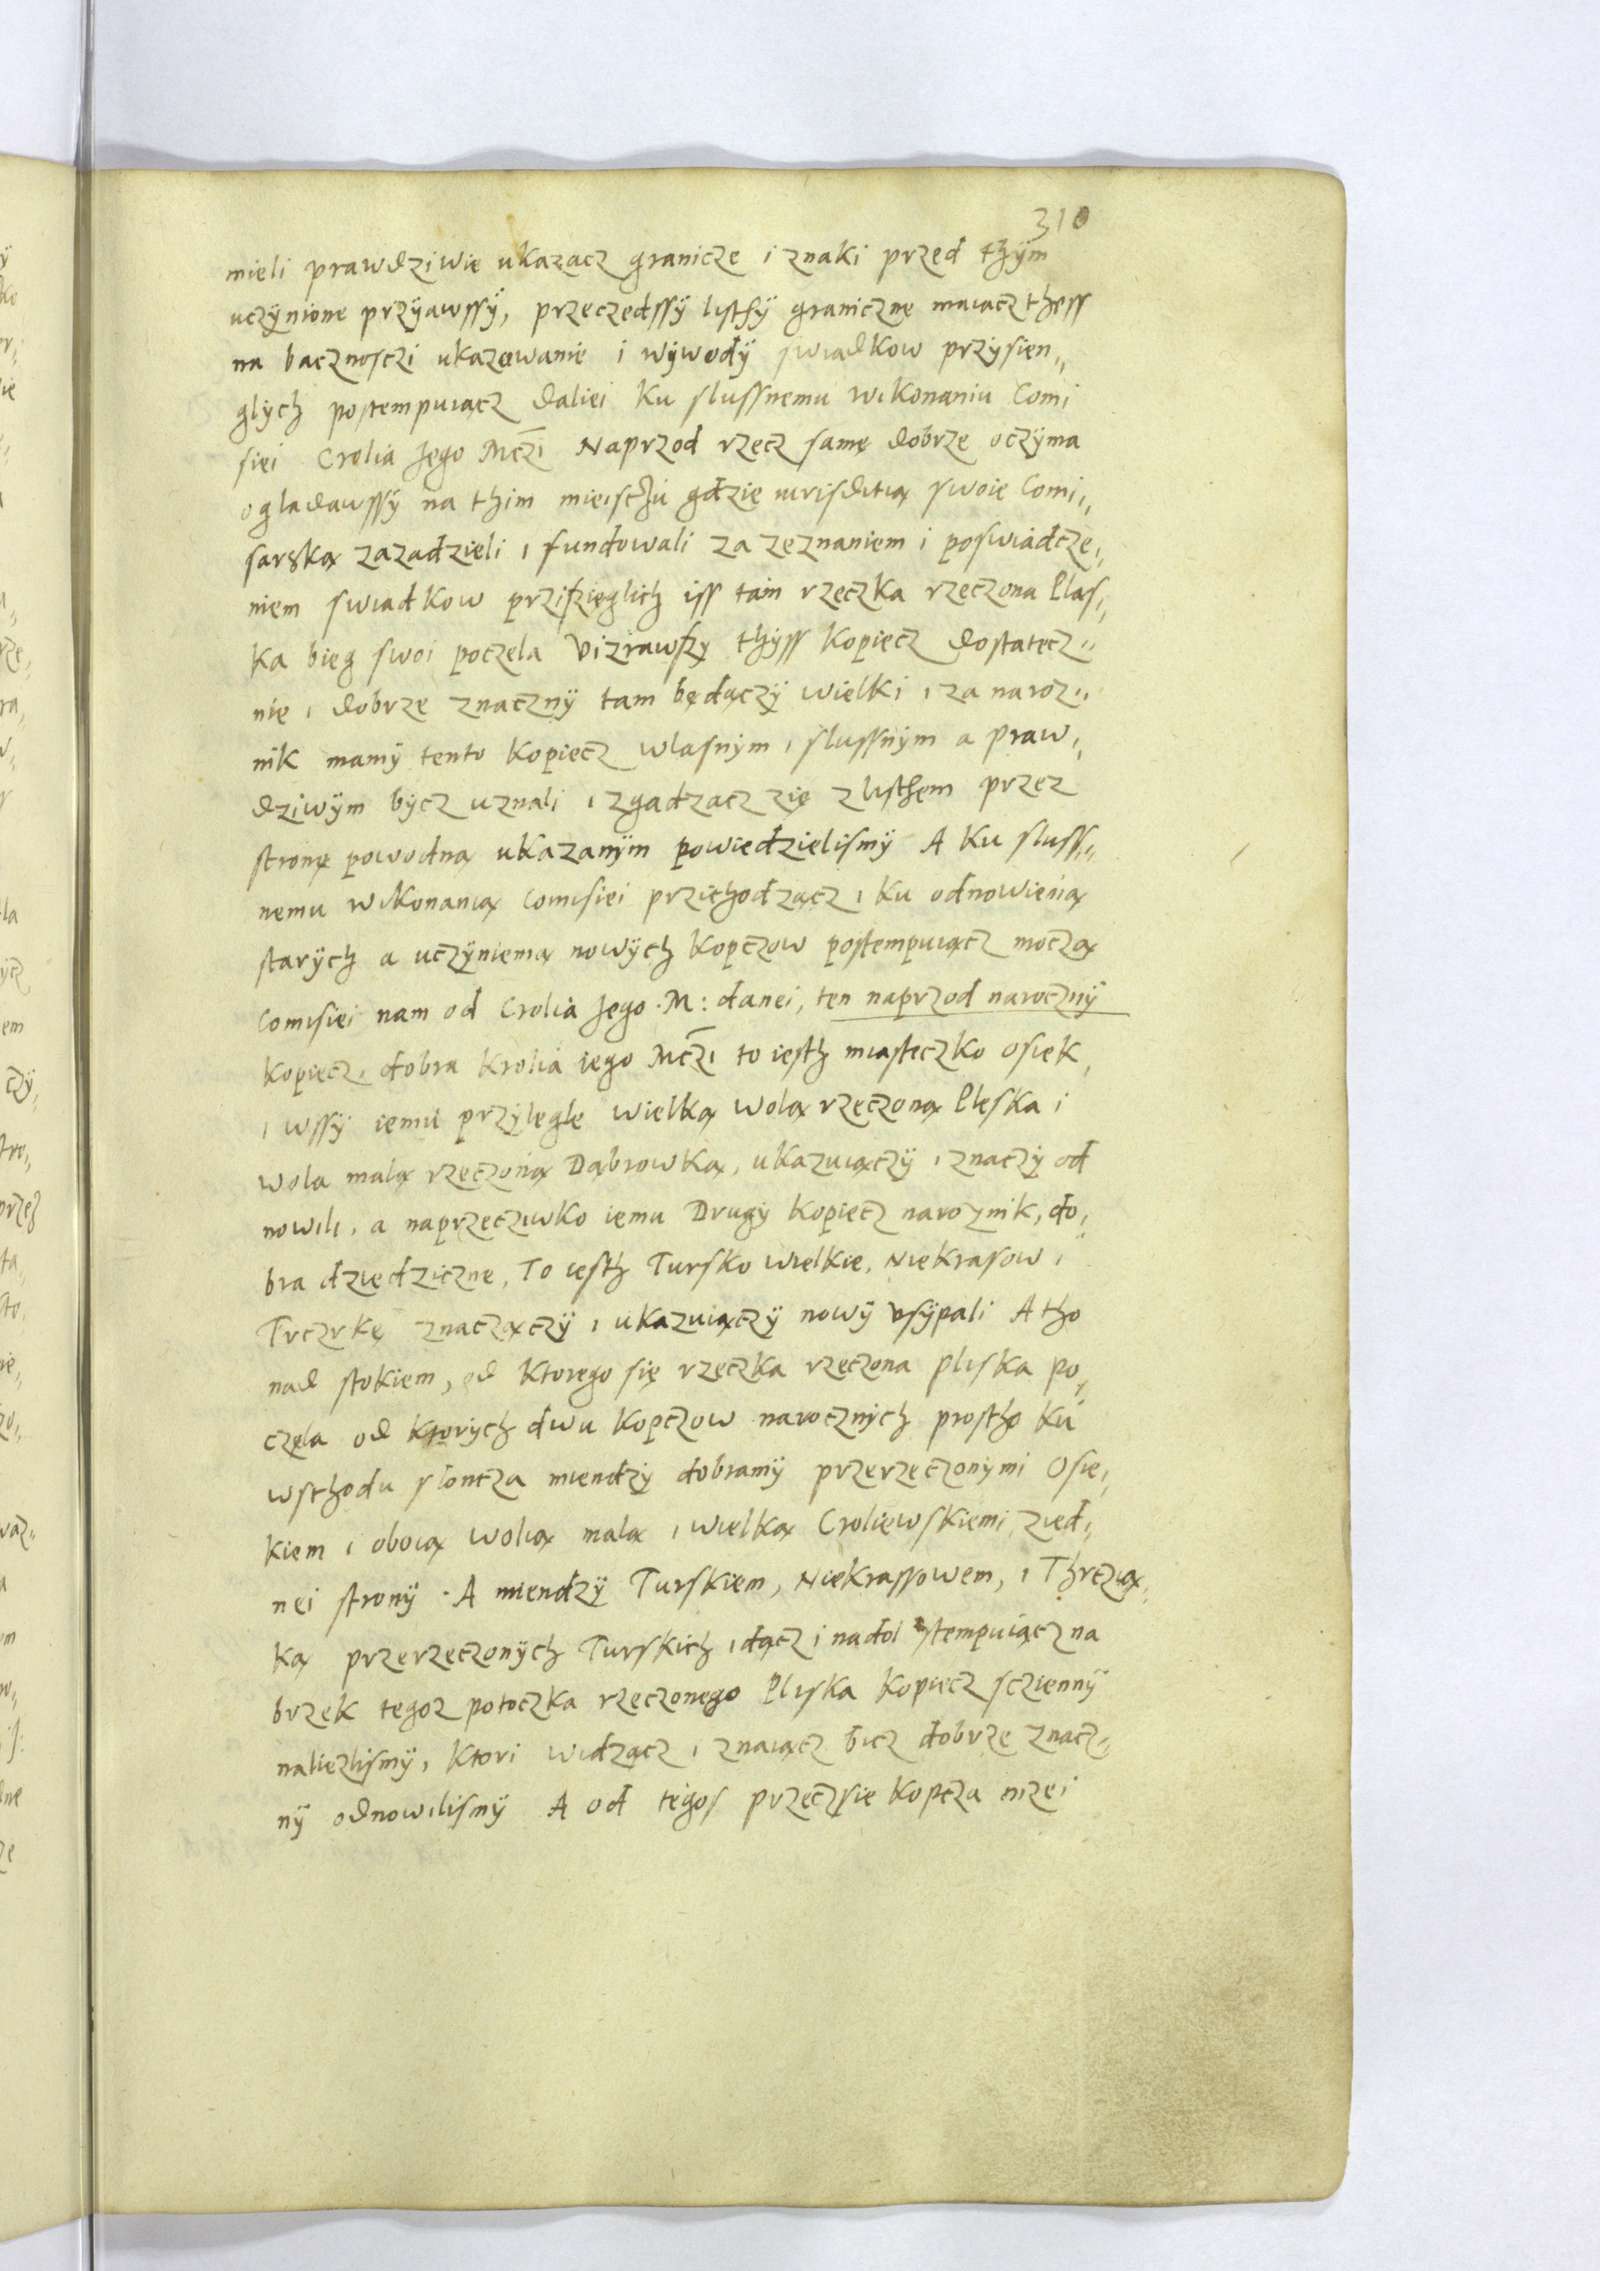 310
mieli prawdziwie ukazacz granicze i znaki przed thÿm
uczÿnione przÿawssÿ, przeczedssÿ listhÿ graniczne maiacz thess
na bacznosczi ukazowanie i wÿwodÿ swiadkow przÿsien,,
glÿch postempuiącz daliei ku slussnemu wikonaniu Comi
siei Crolia Jego Mczi Naprzod rzecz samę dobrze oczÿma
ogladawssÿ na thim mieisczu gdzie iurisditią swoie Comi,,
sarską zazadzieli i fundowali za zeznaniem i poswiadcze,,
niem swiadkow przisięglich iss tam rzeczka rzeczona Plas,,
ka bieg swoi poczela Vizrawszy thÿss kopiecz dostatecz,,
nie i dobrze znacznÿ tam będączÿ wielki i za naroz,,
nik mamÿ tento kopiecz wlasnÿm i slussnÿm a praw,,
dziwÿm bÿcz uznali i zgadzacz zię z listhem przez
stronę powodną ukazanÿm powiedzielismÿ A ku sluss,,
nemu wikonanią Comisiei przichodzącz i ku odnowienią
starÿch a uczÿnienią nowÿch kopczow postempuiącz moczą
Comisiei nam od Crolia Jego M: danei, ten naprzod narocznÿ
kopiecz, dobra Krolia iego Mczi to iesth miasteczko Osiek,
i wssÿ iemu przÿlegle wielką wolą rzeczoną Pleska i
wola malą rzeczoną Dąbrowką, ukazuiączÿ i znaczÿ od
nowili, a naprzecziwko iemu Drugÿ kopiecz naroznik, do,,
bra dziedziczne, To iesth Tursko wielkie, Niekrasow i
Trczrkę znaczączÿ i ukazuiączÿ nowÿ vsÿpali A tho
nad stokiem, od ktorego się rzeczka rzeczona Pliska po,,
częla od ktorÿch dwu kopczow narocznÿch prostho ku
wschodu sloncza miendzÿ dobramÿ przerzeczonÿmi Osie,,
kiem i oboią wolią malą i wielką Croliewskiemi zied,,
nei stronÿ. A miendzÿ Turskiem, Niekrassowem, i Thrczią,,
ką przerzeczonÿch Turskich idącz i nadol stempuiącz na
brzek tegoz potoczka rzeczonego Pliska kopiecz sciennÿ
naliezlismÿ, ktori widzącz i znaiącz bicz dobrze znacz,,
nÿ odnowilismÿ A od tegos przeczsie kopcza nizei